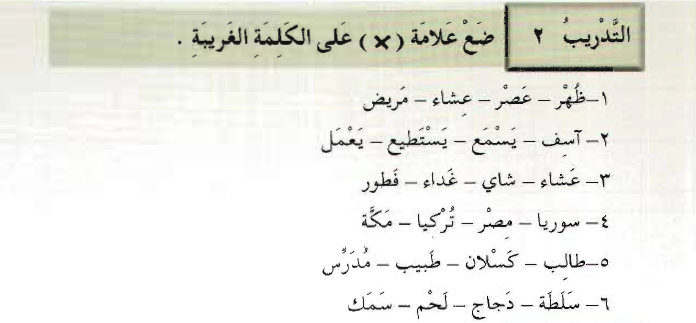 التَّدْرِيبُ ٢ ضَعْ عَلامَة (×) عَلى الكَلِمَةِ الغَريبَةِ .
١–ظُهْر – عَصْر – عِشاء – مَريض
٢– آسِف – يَسْمَع – يَسْتَطيع – يَعْمَل
٣– عَشاء – شاي – غَداء – فَطور
٤– سوريا – مِصْر – تُرْكيا – مَكَّة
٥–طالِب – كَسْلان – طَبيب – مُدَرِّس
٦– سَلَطَة – دَجاج – لَحْم – سَمَك